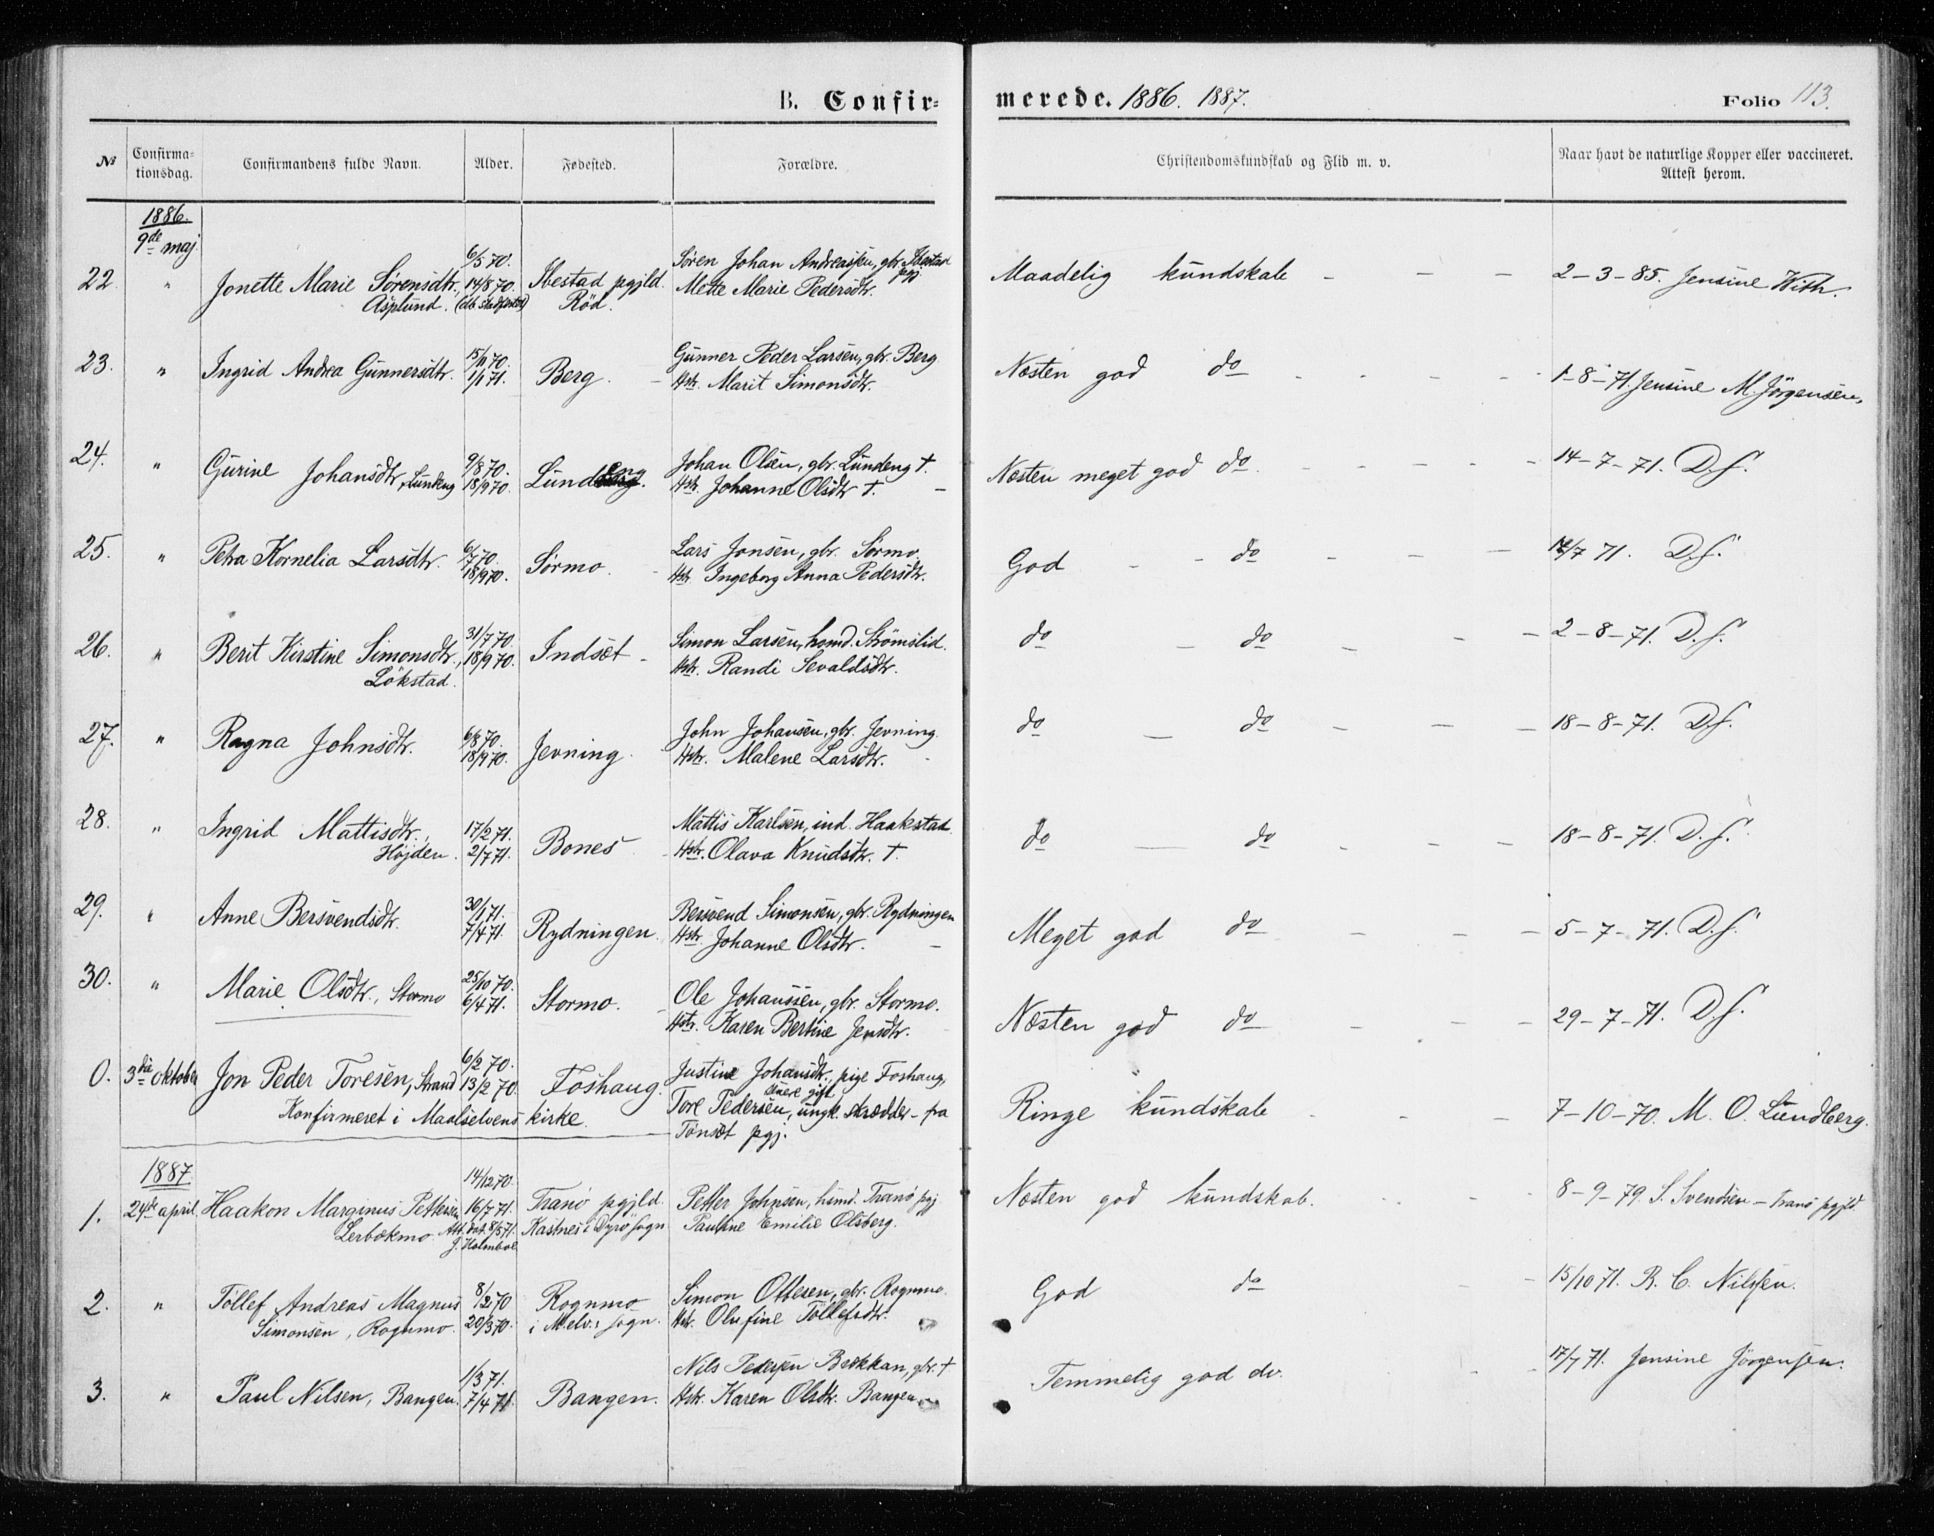 B. Confir-
merede. 1886. 1887.
Folio 113.
№
Confirma-
tionsdag.
Confirmandens fulde Navn.
Alder.
Fødested.
Forældre.
Christendomskundskab og Flid m. v.
Naar havt de naturlige Kopper eller vaccineret.
Attest herom.
1886.
9de maj.
22. " Jonette Marie Sørensdtr., Asplund.
6/5 70.
14/8 70.
Ibestad pgjld.
Rød.
Søren Johan Andreassen, gbr. Ibestad pgj.
Mette Marie Pedersdtr.
Maadelig kundskab - - -
2-3-85. Jensine With.
23. " Ingrid Andrea Gunnersdtr.
15/11 70.
1/1 71.
Berg.
Gunner Peder Larsen, gbr. Berg
Hstr. Marit Simonsdtr.
Næsten god do - - - -
1-8-71. Jensine M. Jörgensen,
24. " Gurine Johansdtr, Lundeng
9/8 70.
18/9 70.
Lundeng.
Johan Olsen, gbr. Lundeng †.
Hstr. Johanne Olsdtr †.
Næsten meget god do - - - -
14-7-71. D.S.
25. " Petra Kornelia Larsdtr.
6/7 70.
18/9 70.
Sørmo.
Lars Jonsen, gbr. Sørmo.
Hstr Ingeborg Anna Pedersdtr.
God - - do - - -
14/7 71. D.S.
26. " Berit Kirstine Simonsdtr., Lökstad.
31/7 70.
18/9 70.
Indset
Simon Larsen, hsmd. Strömslid.
Hstr. Randi Sevaldsdtr.
do - do - - -
2-8-71. D.S.
27. " Ragna Johnsdtr.
6/8 70.
18/9 70.
Jevning.
John Johansen, gbr. Jevning.
Hstr. Malene Larsdtr.
do - do - - -
18-8-71. D.S.
28. " Ingrid Mattisdtr., Höjden.
17/2 71.
2/7 71.
Bones
Mattis Karlsen, ind. Haakstad
Hstr. Olava Knudsdtr. †.
do - do - - -
18-8-71. D.S.
29. " Anne Bersvendsdtr.
30/1 71.
7/4 71.
Rydningen.
Bersvend Simonsen, gbr. Rydningen
Hstr Johanne Olsdtr.
Meget god do - - -
5-7-71. D.S.
30. " Marie Olsdtr., Stormo
25/10 70.
6/4 71.
Stormo.
Ole Johanssen, gbr. Stormo.
Hstr. Karen Bertine Jensdtr.
Næsten god do - - -
29-7-71. D.S.
0. 3die oktober Jon Peder Toresen, Strand
6/2 70.
13/2 70.
Foshaug.
Konfirmeret i Maalselvens kirke.
Justine Johansdtr., pige Foshaug,
Tore Pedersen, ungk. skrædder - fra
Tönset pgj.
Ringe kundskab - - -
7-10-70. M. O. Lundberg.
1887
1. 24de april. Haakon Marginus Pettersen Lerbækmo
14/12 70.
16/7 71.
J. Holmboe
Tranö pgjld.
Kastnes i Dyrö sogn
Petter Johnsen, husmd. Tranö pgj
Pauline Emilie Olsberg.
Næsten god kundskab. - - -
8-9-79. S. Svendsen - Tranö pgjld
2. " Tollef Andreas Magnus
Simonsen, Rognmo.
8/2 70
20/3 70.
Rognmo
i M.elv.s sogn.
Simon Ottesen, gbr. Rognmo.
Hstr. Olufine Tollefsdtr.
God do - -
15/10 71. R. C. Nilsen.
3. " Paul Nilsen, Bangen.
1/3 71.
7/4 71
Bangen.
Nils Pedersen Bækkan, gbr. †
Hstr. Karen Olsdtr. Bangen
Temmelig god do. - -
17/7 71. Jensine Jörgensen.